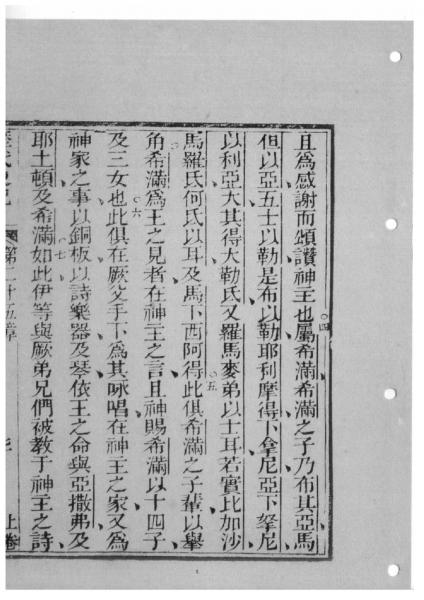 且爲感謝而頌讚神王也屬希滿希滿之子乃布其亞馬
四
但以亞五士以勒是布以勒耶利摩得下拿尼亞下拏尼
以利亞大其得大勒氏又羅馬麥弟以士耳若實比加沙
五
馬羅氏何氏以耳及馬下西阿得此俱希滿之子輩以舉
角希滿爲王之見者在神王之言且神賜希滿以十四子
六
及三女也此俱在厥父手下爲其咏唱在神王之家又爲
神家之事以銅板以詩樂器及琴依王之命與亞撒弗及
七
耶土頓及希滿如此伊等與厥弟兄們被教于神王之詩
第二十五章
上卷